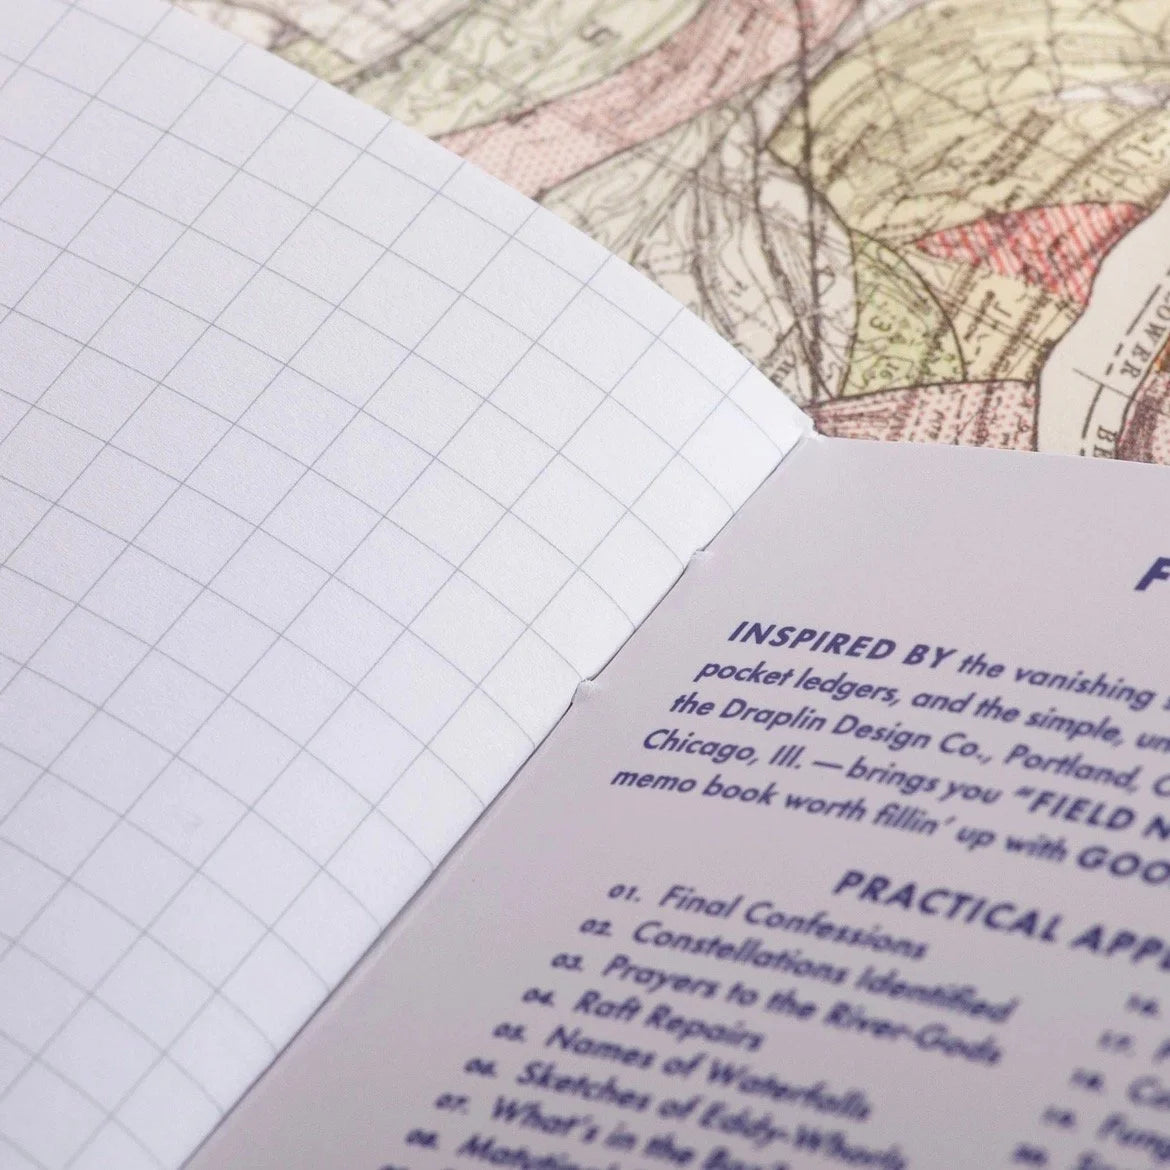 LOWER
INSPIRED BY the vanishing
pocket ledgers, and the simple, un
the Draplin Design Co., Portland,
Chicago, Ill. — brings you “FIELD N
memo book worth fillin’ up with GOO
PRACTICAL APPL
01. Final Confessions
02. Constellations Identified
03. Prayers to the River-Gods
04. Raft Repairs
05. Names of Waterfalls
06. Sketches of Eddy-Whorls
07. What’s in the
08.
16.
17.
18.
19.